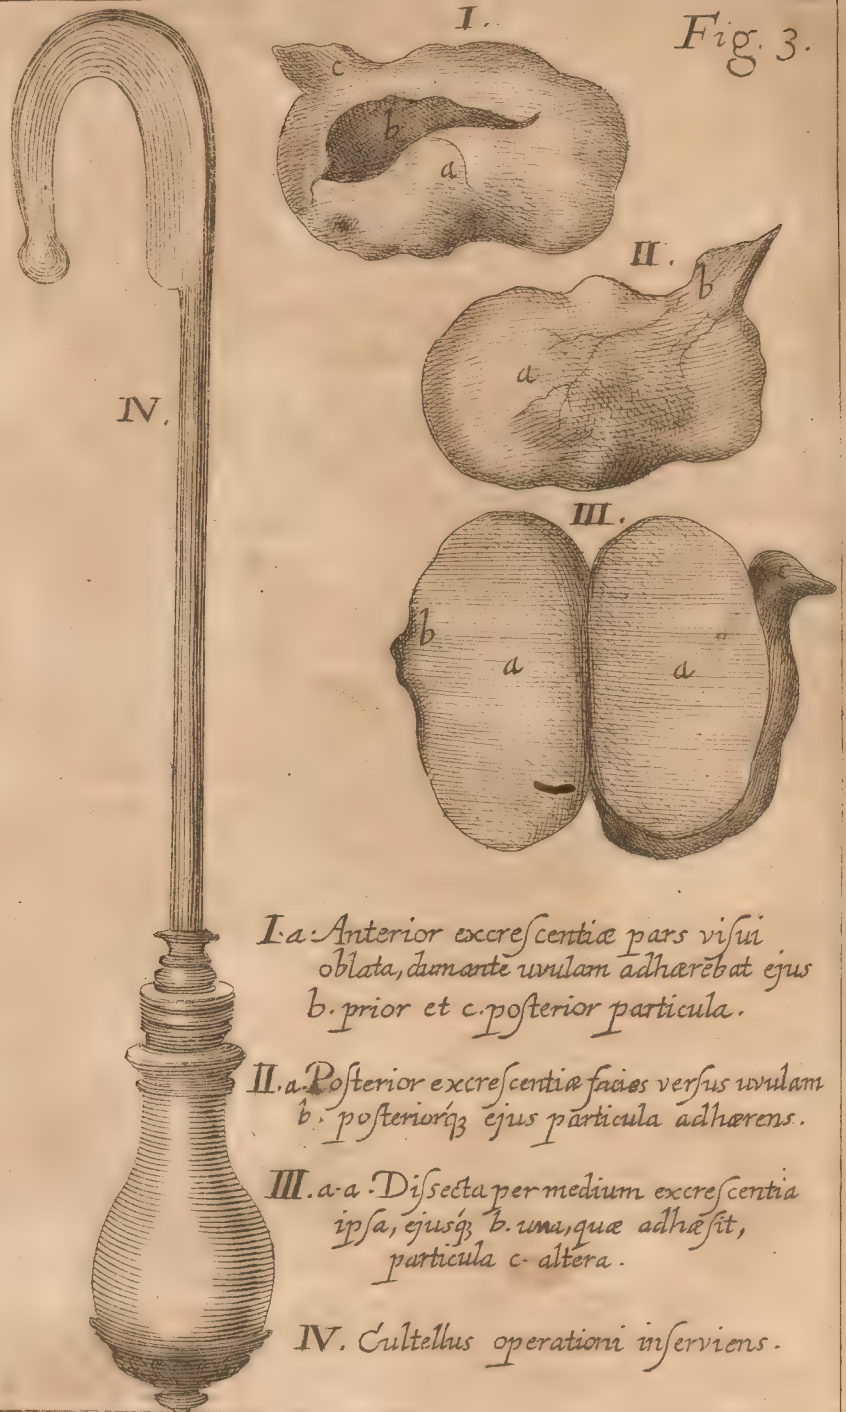 Fig. 3.
I.
c
b
a
II.
b
a
IV.
III.
b
a
a
c
I. a. Anterior excreſcentiæ pars viſui
oblata, dum ante uvulam adhærebat ejus
b. prior et c. poſterior particula.
II. a. Poſterior excreſcentiæ facies verſus uvulam
b. poſteriorq́ꝫ ejus particula adhærens.
III. a-a. Diſsecta per medium excreſcentia
ipſa, ejusq́ꝫ b. una, quæ adhæſit,
particula c. altera.
IV. Cultellus operationi inſerviens.